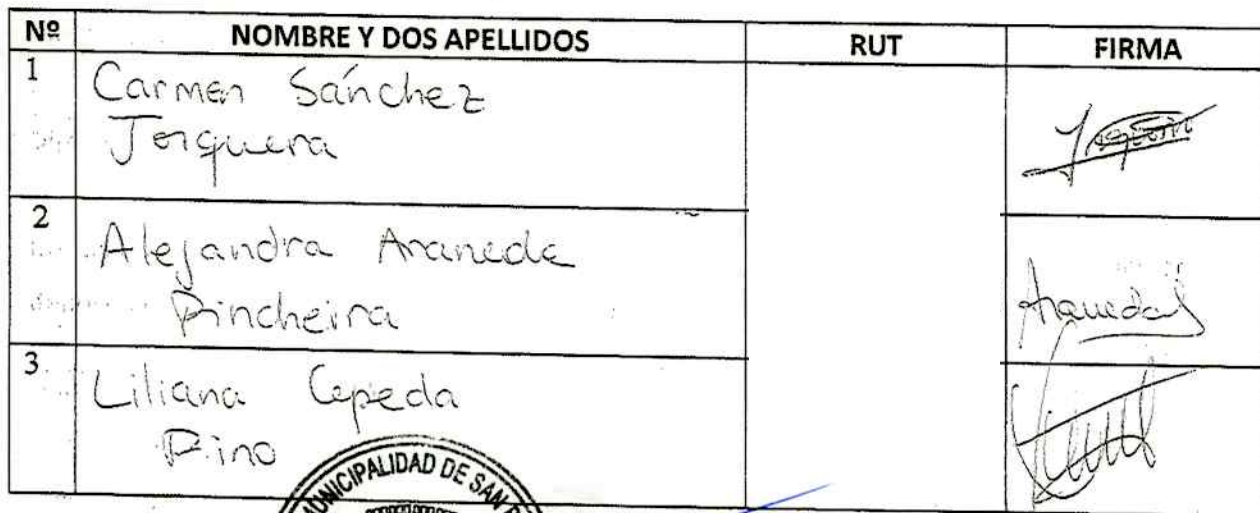 Nº NOMBRE Y DOS APELLIDOS RUT FIRMA
1 Carmen Sánchez
Jorquera
2 Alejandra Araneda
Pincheira
Araneda
3 Liliana Cepeda
Pino
MUNICIPALIDAD DE SAN